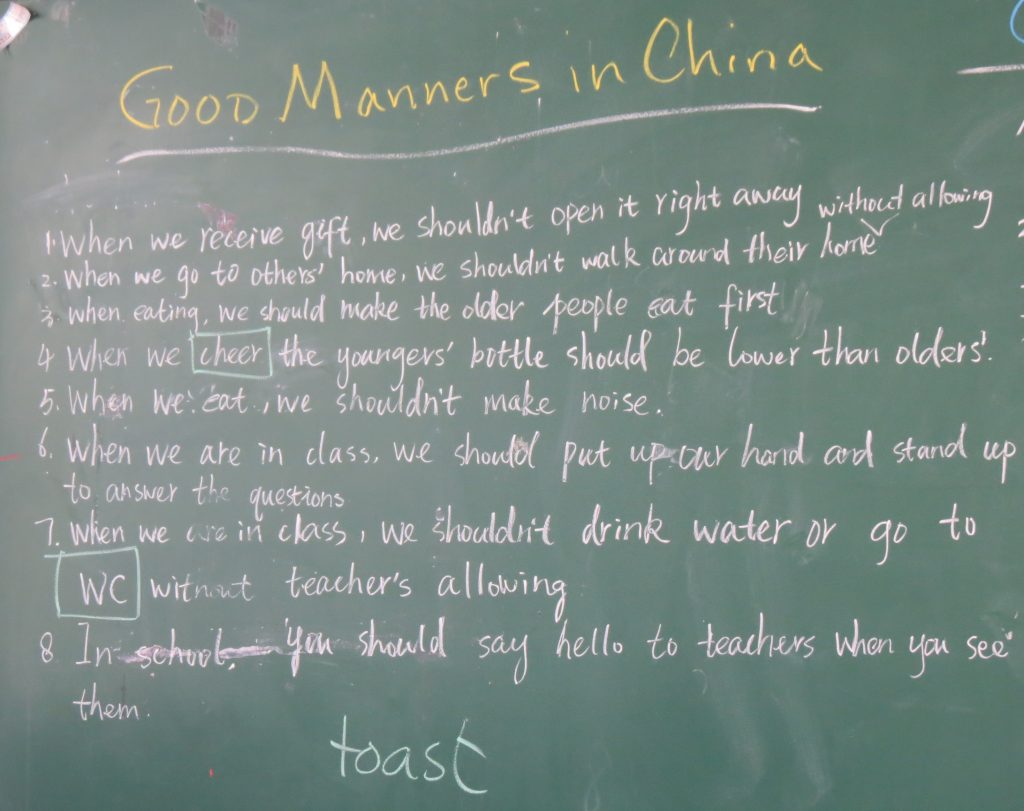 Good Manners in China
1. When we receive gift, we shouldn't open it right away
2. When we go to others' home, we shouldn't walk around their home without allowing
3. When eating, we should make the older people eat first
4 When we cheer the youngers' bottle should be lower than olders'.
5. When we eat, we shouldn't make noise.
6. When we are in class, we should put up our hand and stand up
to answer the questions
7. When we are in class, we shouldn't drink water or go to
WC without teacher's allowing
8 In school, you should say hello to teachers when you see
them.
toast